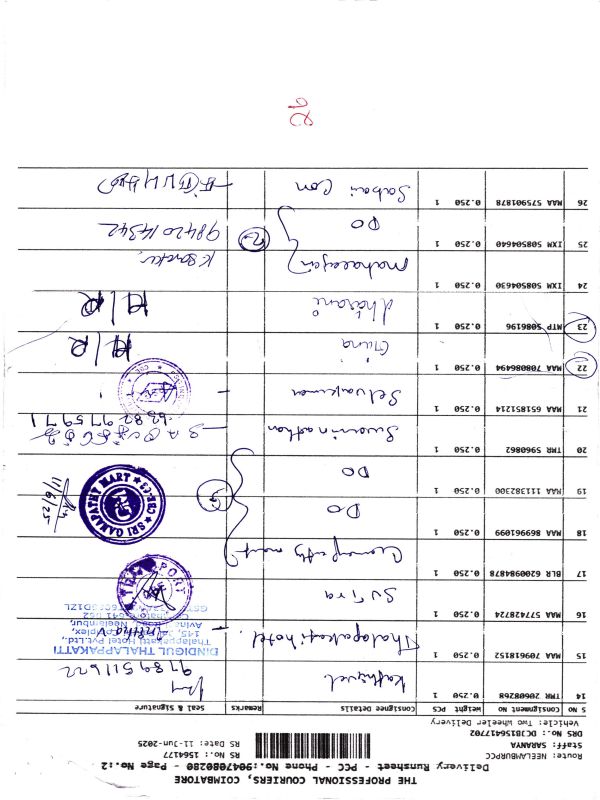 THE PROFESSIONAL COURIERS, COIMBATORE
Delivery Runsheet - PCC - Phone No.:9047080280 - Page No.:2
Route: NEELAMBURPCC
Staff: SARANYA
DRS No.: DCJB15417702
Vehicle: Two Wheeler Delivery
RS No.: 1564177
RS Date: 11-Jun-2025
S NO Consignment No Weight PCS Consignee Details Remarks Seal & Signature
14 TRR 20608268 0.250 1 Kathirvel 9789511622
15 MAA 709618152 0.250 1 Thalapakatti hotel.
DINDIGUL THALAPPAKATTI
Thalappakatti Hotel Pvt.Ltd.,
16 MAA 577428724 0.250 1 Sutira
17 BLR 6200984878 0.250 1 Ganapathy mart
18 MAA 869961099 0.250 1 DO
19 MAA 111382300 0.250 1 DO
SRI GANAPATHY MART
11/6/25
20 TRR 5960862 0.250 1 Swaminathan
21 MAA 651851214 0.250 1 Selvakumar
22 MAA 708086494 0.250 1 Giuna
23 MTP 5086196 0.250 1 dharani
24 IXM 508504630 0.250 1
25 IXM 508504640 0.250 1 DO 98420 14342
26 MAA 575901878 0.250 1 Sabari Con